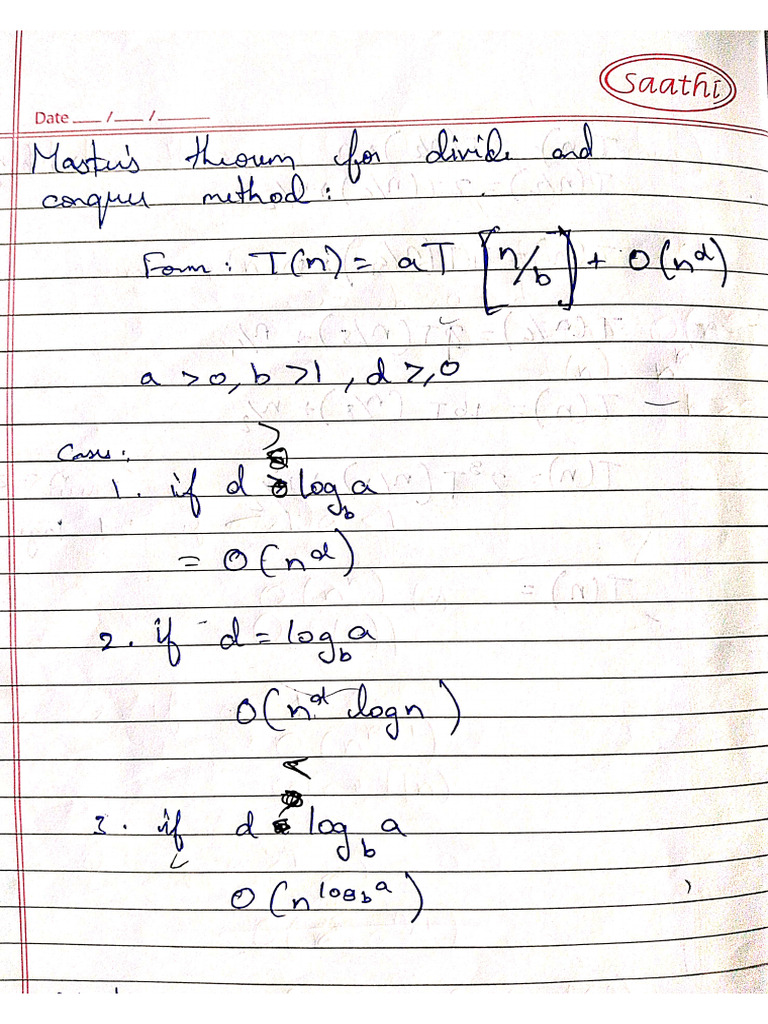 Saathi
Date ___ / ___ / _____
Master's theorem for divide and
conquer method:
Form: T(n) = aT [n/b] + O(n^d)
a > 0, b > 1, d ≥ 0
Cases:
1. if d > log_b a
= O(n^d)
2. if d = log_b a
O(n^d log n)
3. if d < log_b a
O(n^{log_b a})